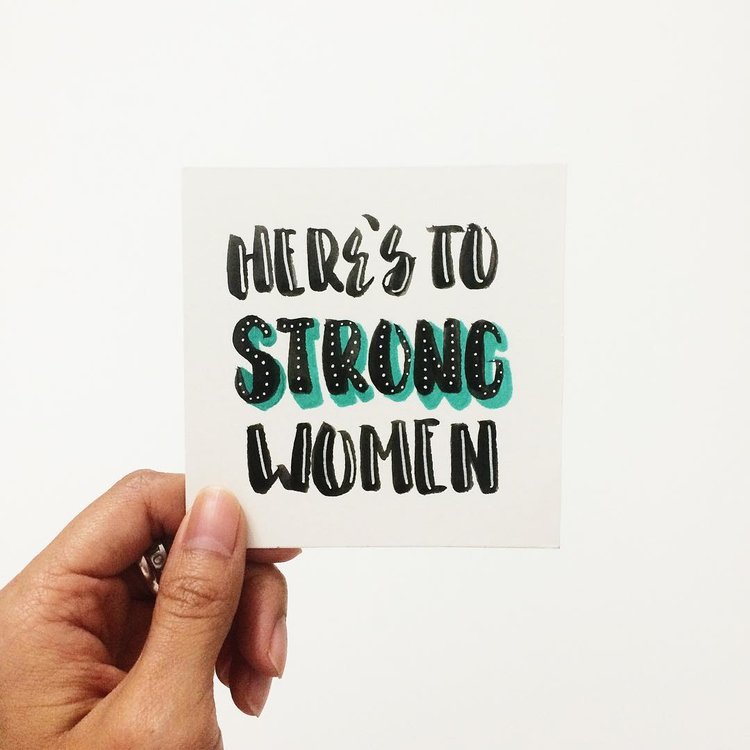 HERE'S TO
STRONG
WOMEN